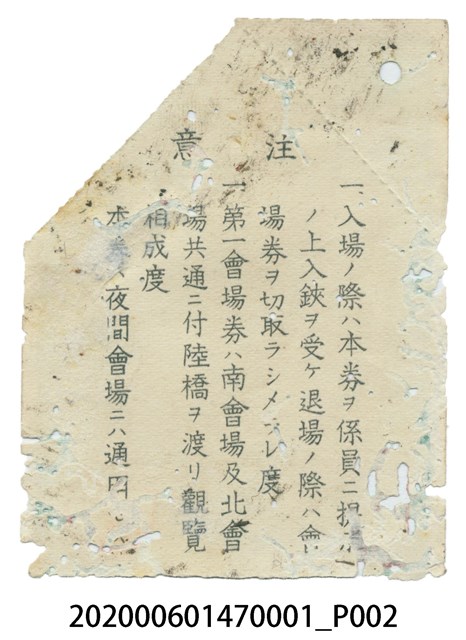 注意
一、入場ノ際ハ本券ヲ係員ニ提示
ノ上入鋏ヲ受ケ退場ノ際ハ會
場券ヲ切取ラシメ レ度
一、第一會場券ハ南會場及北會
場共通ニ付陸橋ヲ渡リ觀覽
相成度
本券ハ夜間會場ニハ通用
202000601470001_P002